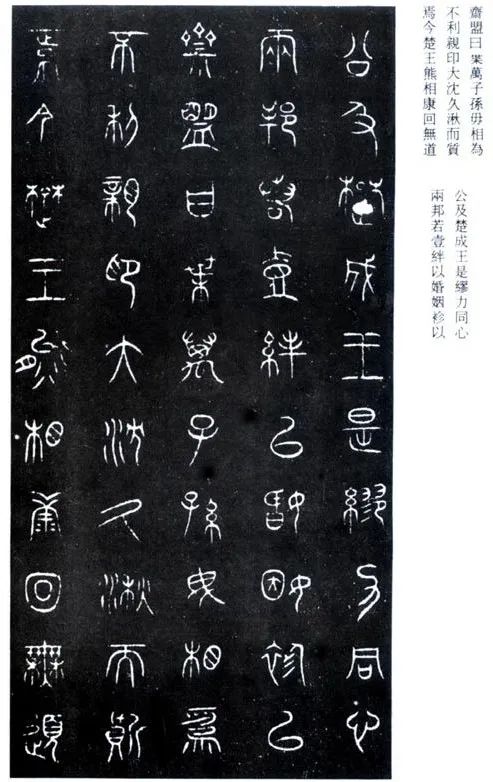 齋盟曰枼萬子孫毋相為
不利親印大沈久湫而質
焉今楚王熊相康回無道
公及楚成王是繆力同心
兩邦若壹絆以婚姻袗以
公及楚成王是繆力同心
兩邦若壹絆以婚姻袗以
齋盟曰枼萬子孫毋相為
不利親印大沈久湫而質
焉今楚王熊相康回無道